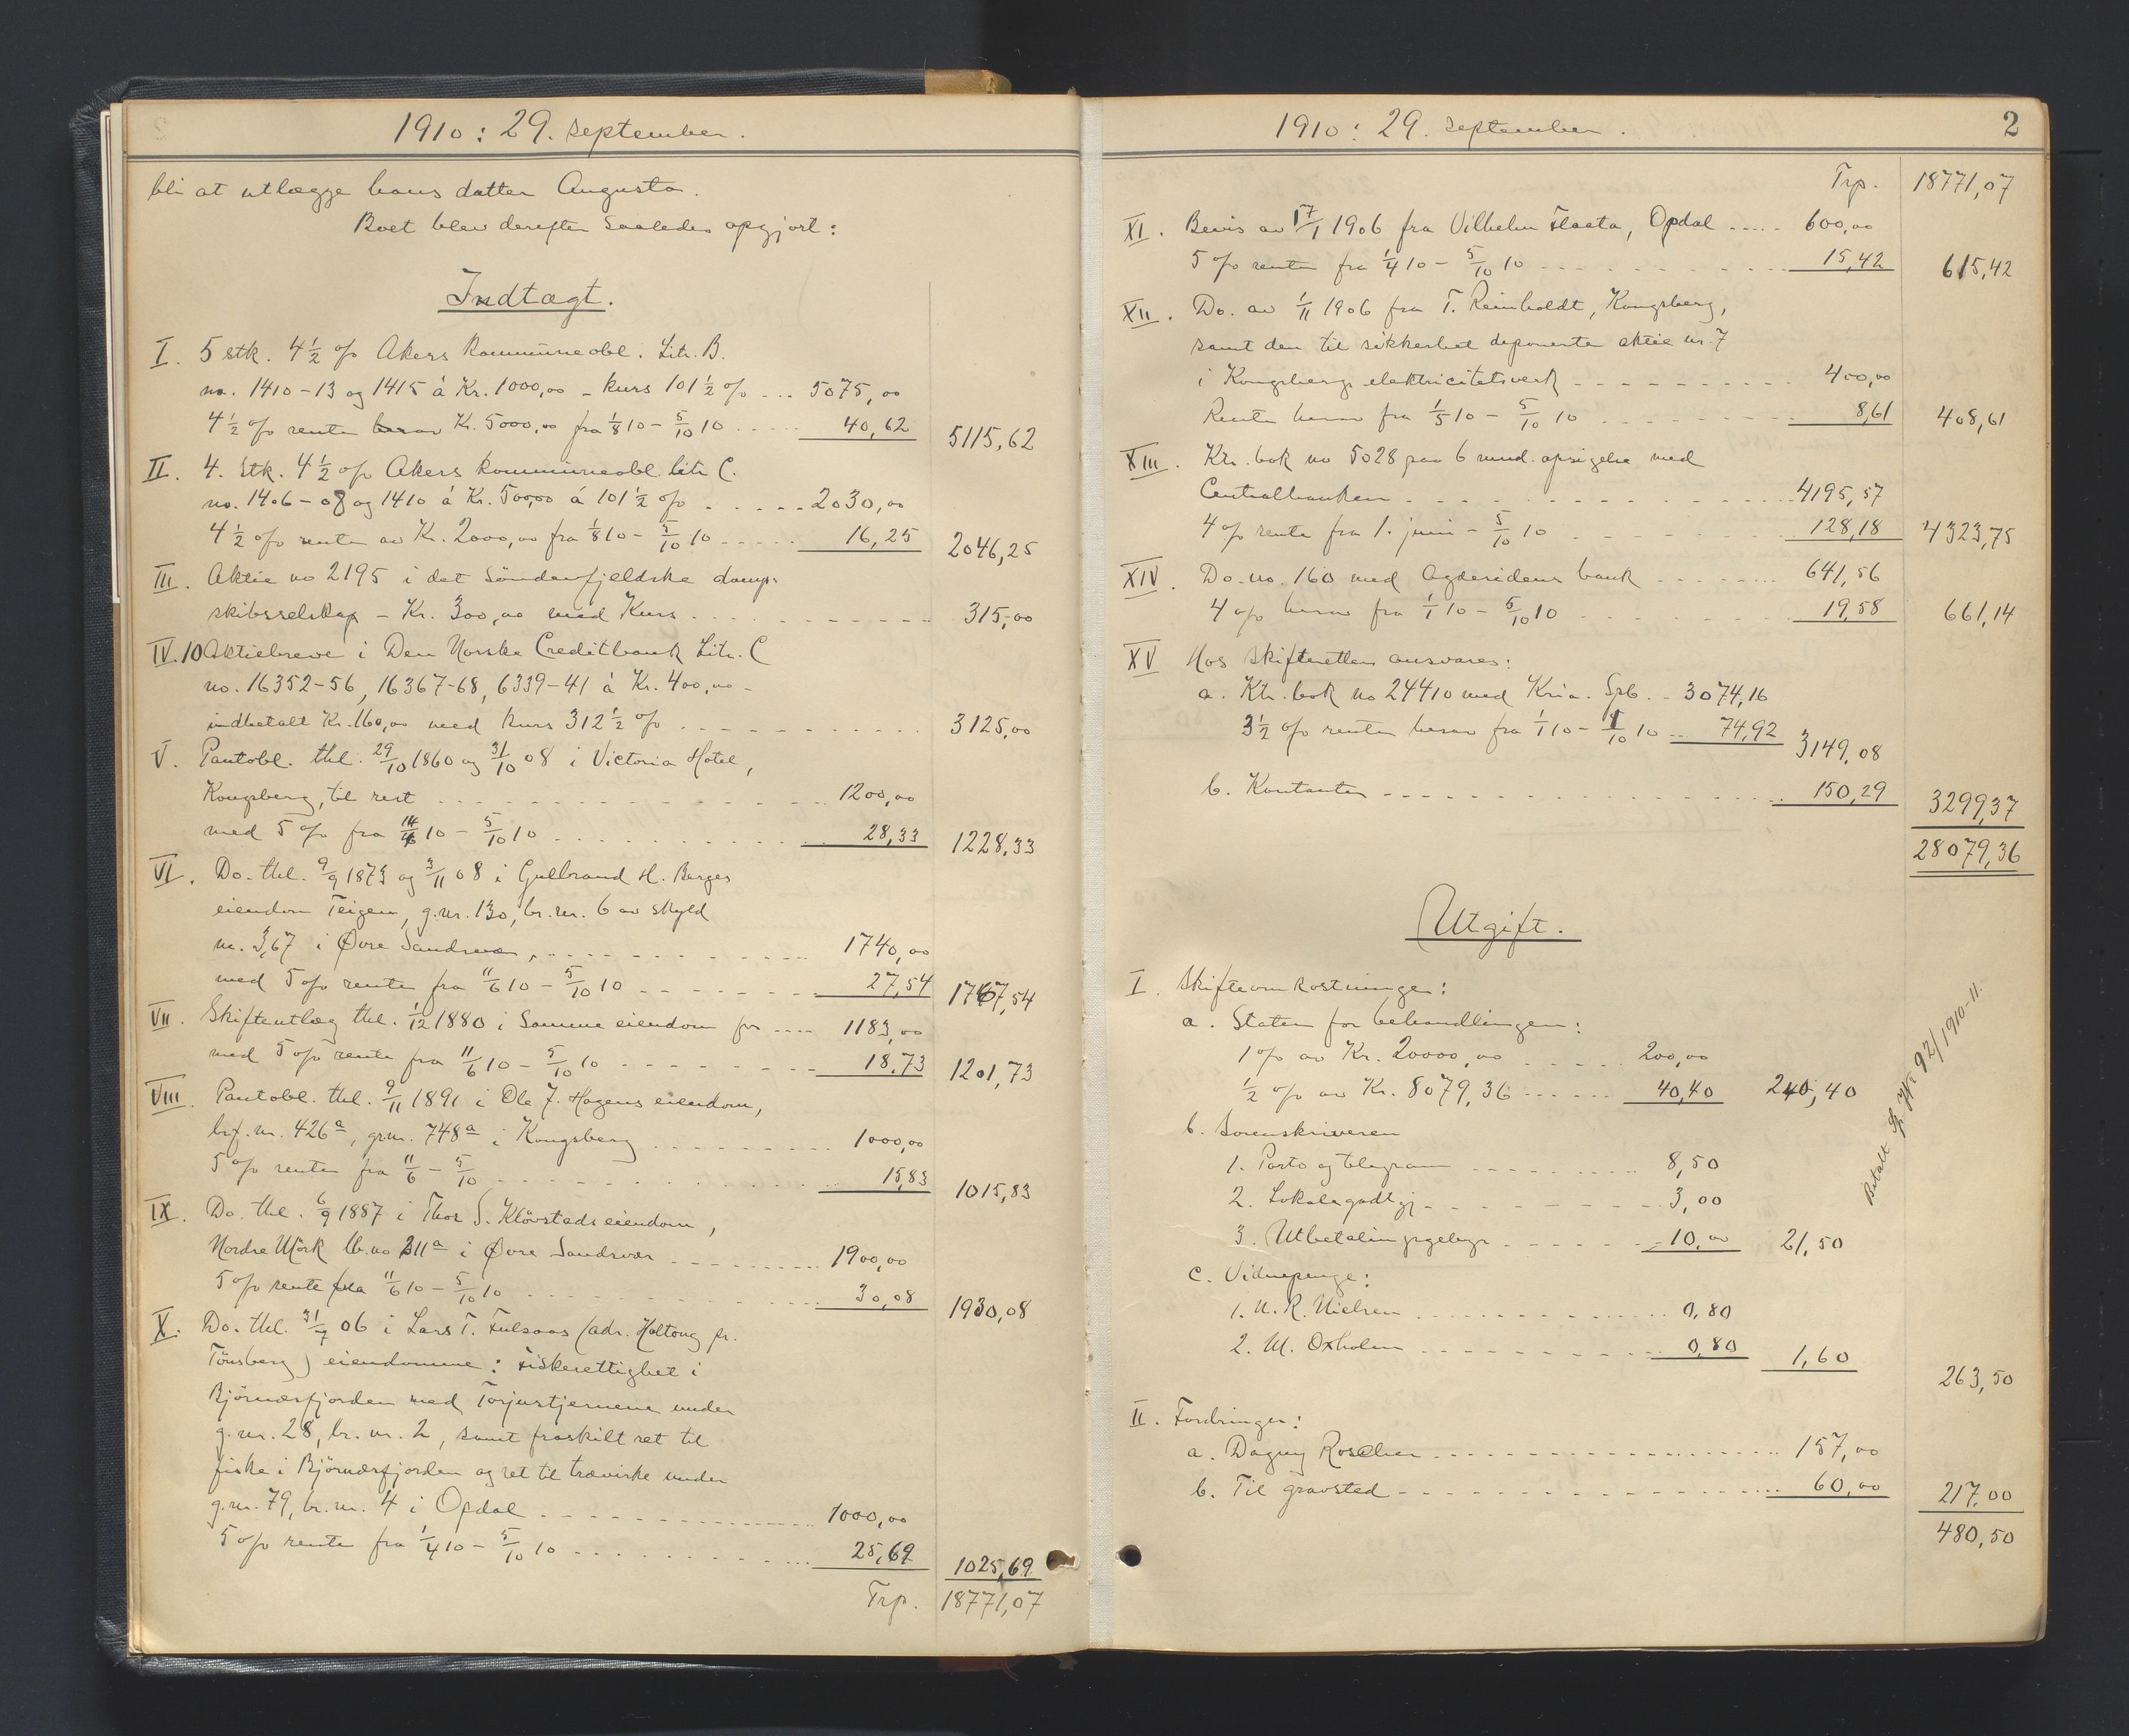 1910: 29. september.
bli at utlægge hans datter Augusta.
Boet blev derefter saaledes opgjort:
Indtægt.
I. 5 stk. 4 1/2 o/o Akers kommuneobl. Litr. B.
no. 1410-13 og 1415 á Kr. 1000,00 - kurs 101 1/2 o/o ... 5075,00
4 1/2 o/o renter herav Kr. 5000,00 fra 1/8 10 - 5/10 10 ..... 40,62 5115,62
II. 4. Stk. 4 1/2 o/o Akers kommuneobl. Litr C.
no. 1406-08 og 1410 á Kr. 500,00 á 101 1/2 o/o ..... 2030,00
4 1/2 o/o renter av Kr. 2000,00 fra 1/8 10 - 5/10 10 ..... 16,25 2046,25
III. Aktie no 2195 i det Söndenfjeldske damp-
skibsselskap - Kr. 300,00 med Kurs ........... 315,00
IV. 10 Aktiebreve i Den Norske Creditbank Litr. C
no. 16352-56, 16367-68, 6339-41 á Kr. 400,00 -
indbetalt Kr. 160,00 med kurs 312 1/2 o/o ........... 3125,00
V. Pantobl. thl. 29/10 1860 og 31/10 08 i Victoria Hotel,
Kongsberg, til rest ........... 1200,00
med 5 o/o fra 14/6 10 - 5/10 10 ........... 28,33 1228,33
VI. Do. thl. 9/9 1873 og 3/11 08 i Gulbrand H. Berges
eiendom Teigen, g.nr. 130, br.nr. 6 av skyld
m. 3,67 i Øvre Sandsvær, ........... 1740,00
med 5 o/o renter fra 11/6 10 - 5/10 10 ....... 27,54 1767,54
VII. Skifteutlæg thl. 1/12 1880 i Samme eiendom for .... 1183,00
med 5 o/o rente fra 11/6 10 - 5/10 10 ....... 18,73 1201,73
VIII. Pantobl. thl. 9/11 1891 i Ole J. Hagens eiendom,
brf. nr. 426a, grnr. 748a i Kongsberg ......... 1000,00
5 o/o renter fra 11/6 - 5/10 ........... 15,83 1015,83
IX. Do. thl. 6/9 1887 i Thor S. Klövstads eiendom,
Nordre Mörk lb.no 211a i Øvre Sandsvær ......... 1900,00
5 o/o rente fra 11/6 10 - 5/10 10 ........... 30,08 1930,08
X. Do. thl. 31/7 06 i Lars T. Fulsaas (adr. Holtung pr.
Tönsberg) eiendomme: Fiskerettighet i
Björnæsfjorden med Torjustjernene under
g.nr. 28, br. nr. 2, samt fraskilt ret til
fiske i Björnæsfjorden og ret til trævirke under
g.nr. 79, br. nr. 4 i Opdal ........... 1000,00
5 o/o renter fra 1/4 10 - 5/10 10 ........... 25,69 1025,69
Trp. 18771,07
1910: 29. september. 2
Trp. 18771,07
XI. Bevis av 17/1 1906 fra Vilhelm Flaata, Opdal ..... 600,00
5 o/o renter fra 1/4 10 - 5/10 10 ........... 15,42 615,42
XII. Do. av 1/11 1906 fra T. Reinholdt, Kongsberg,
samt den til sikkerhet deponerte aktie nr. 7
i Kongsbergs elektricitetsverk .......... 400,00
Renter herav fra 1/5 10 - 5/10 10 .......... 8,61 408,61
XIII. Ktr. bok no 5028 paa 6 mnd. opsigelse med
Centralbanken ........... 4195,57
4 o/o rente fra 1. juni - 5/10 10 ......... 128,18 4323,75
XIV. Do. no. 160 med Agdesidens bank ........ 641,56
4 o/o herav fra 1/1 10 - 5/10 10 .......... 19,58 661,14
XV Hos skifteretten ansvares:
a. Ktr. bok no 24410 med Kria. Spb. - 3074,16
3 1/2 o/o renter herav fra 1/1 10 - 1/10 10 ... 74,92 3149,08
b. Kontanter ........... 150,29 3299,37
28079,36
Utgift.
I. Skifteomkostninger:
a. Staten for behandlingen:
1 o/o av Kr. 20000,00 ..... 200,00
1/2 o/o av Kr. 8079,36 ...... 40,40 240,40
b. Sorenskriveren
1. Porto og telegram .......... 8,50
2. Lokalegodtgj .......... 3,00
3. Utbetalingsgebyr ....... 10,00 21,50
c. Vidnepenge:
1. N. R. Nielsen ............. 0,80
2. M. Oxholm ........... 0,80 1,60
263,50
Betalt 92/1910-11.
II. Fordringer:
a. Dagny Roscher ........... 157,00
b. Til gravsted ........... 60,00 217,00
480,50